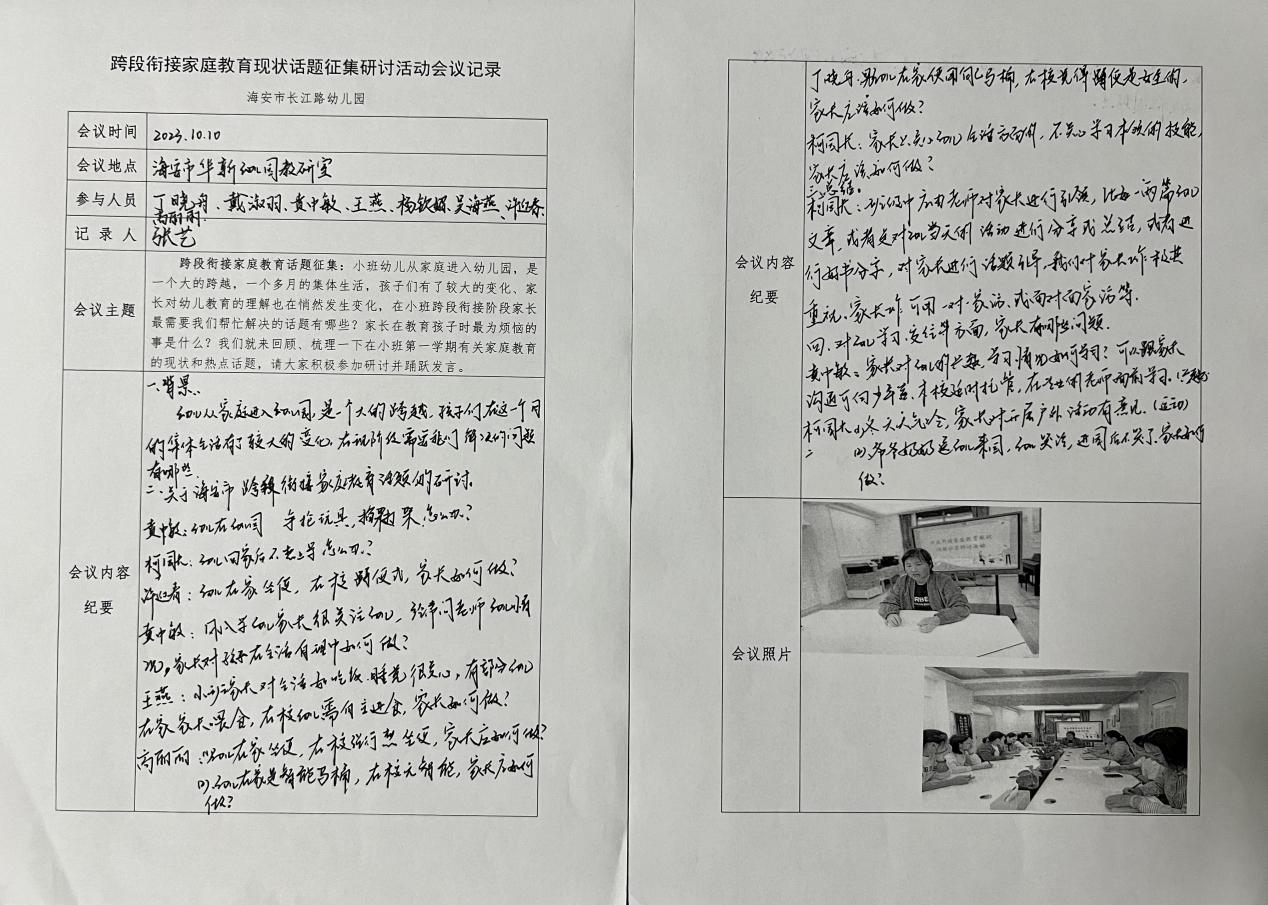 跨段衔接家庭教育现状话题征集研讨活动会议记录
海安市长江路幼儿园
会议时间 2023.10.10
会议地点 海安市华新幼儿园教研室
参与人员 丁晓丹、戴淑羽、黄中敏、王燕、杨钦娜、吴海燕、许红春、
高丽丽
记录人 张艺
会议主题
跨段衔接家庭教育话题征集：小班幼儿从家庭进入幼儿园，是
一个大的跨越，一个多月的集体生活，孩子们有了较大的变化、家
长对幼儿教育的理解也在悄然发生变化，在小班跨段衔接阶段家长
最需要我们帮忙解决的话题有哪些？家长在教育孩子时最为烦恼的
事是什么？我们就来回顾、梳理一下在小班第一学期有关家庭教育
的现状和热点话题，请大家积极参加研讨并踊跃发言。
会议内容
纪要
一、背景
幼儿从家庭进入幼儿园，是一个大的跨越，孩子们在这一个月
的集体生活有了较大的变化，在现阶段需要我们解决的问题
有哪些
二、关于海安市跨段衔接家庭教育话题的研讨。
黄中敏：幼儿在幼儿园 争抢玩具，怎么办？
柯园长：幼儿回家后不想上学怎么办？
许红春：幼儿在家坐便，在校蹲便式，家长如何做？
黄中敏：刚入学幼儿家长很关注幼儿，经常问老师幼儿情
况，家长对孩子在生活自理中如何做？
王燕：小班家长对生活如吃饭、睡觉很关心，有部分幼儿
在家家长喂食，在校幼儿需自主进食，家长如何做？
高丽丽：(1)幼儿在家坐便，在校强行想坐便，家长应如何做？
(2)幼儿在家是智能马桶，在校无智能，家长应如何
做？
会议内容
纪要
丁晓丹：男幼儿在家使用马桶，在校觉得蹲便是女生的，
家长应该如何做？
柯园长：家长只关心幼儿生活方面外，不关心学习本领的技能，
家长应该如何做？
三、总结。
柯园长：班级中应由老师对家长进行引领，比如一两篇幼儿
文章，或者是对幼儿当天的活动进行分享或总结，或者进
行好书分享，对家长进行话题引导，我们对家长工作极其
重视，家长工作可用一对一家访、或面对面家访等。
四、对幼儿学习、交往等方面，家长有哪些问题
黄中敏：家长对幼儿的兴趣、学习情况如何学习？可以跟家长
沟通可问少年宫、本校延时托管，在专业的老师面前学习。
柯园长：(1)冬天天气冷，家长对开展户外活动有意见。（运动）
(2)爷爷奶奶送幼儿来园，幼儿哭泣，进园后不哭了，家长如何
做？
会议照片